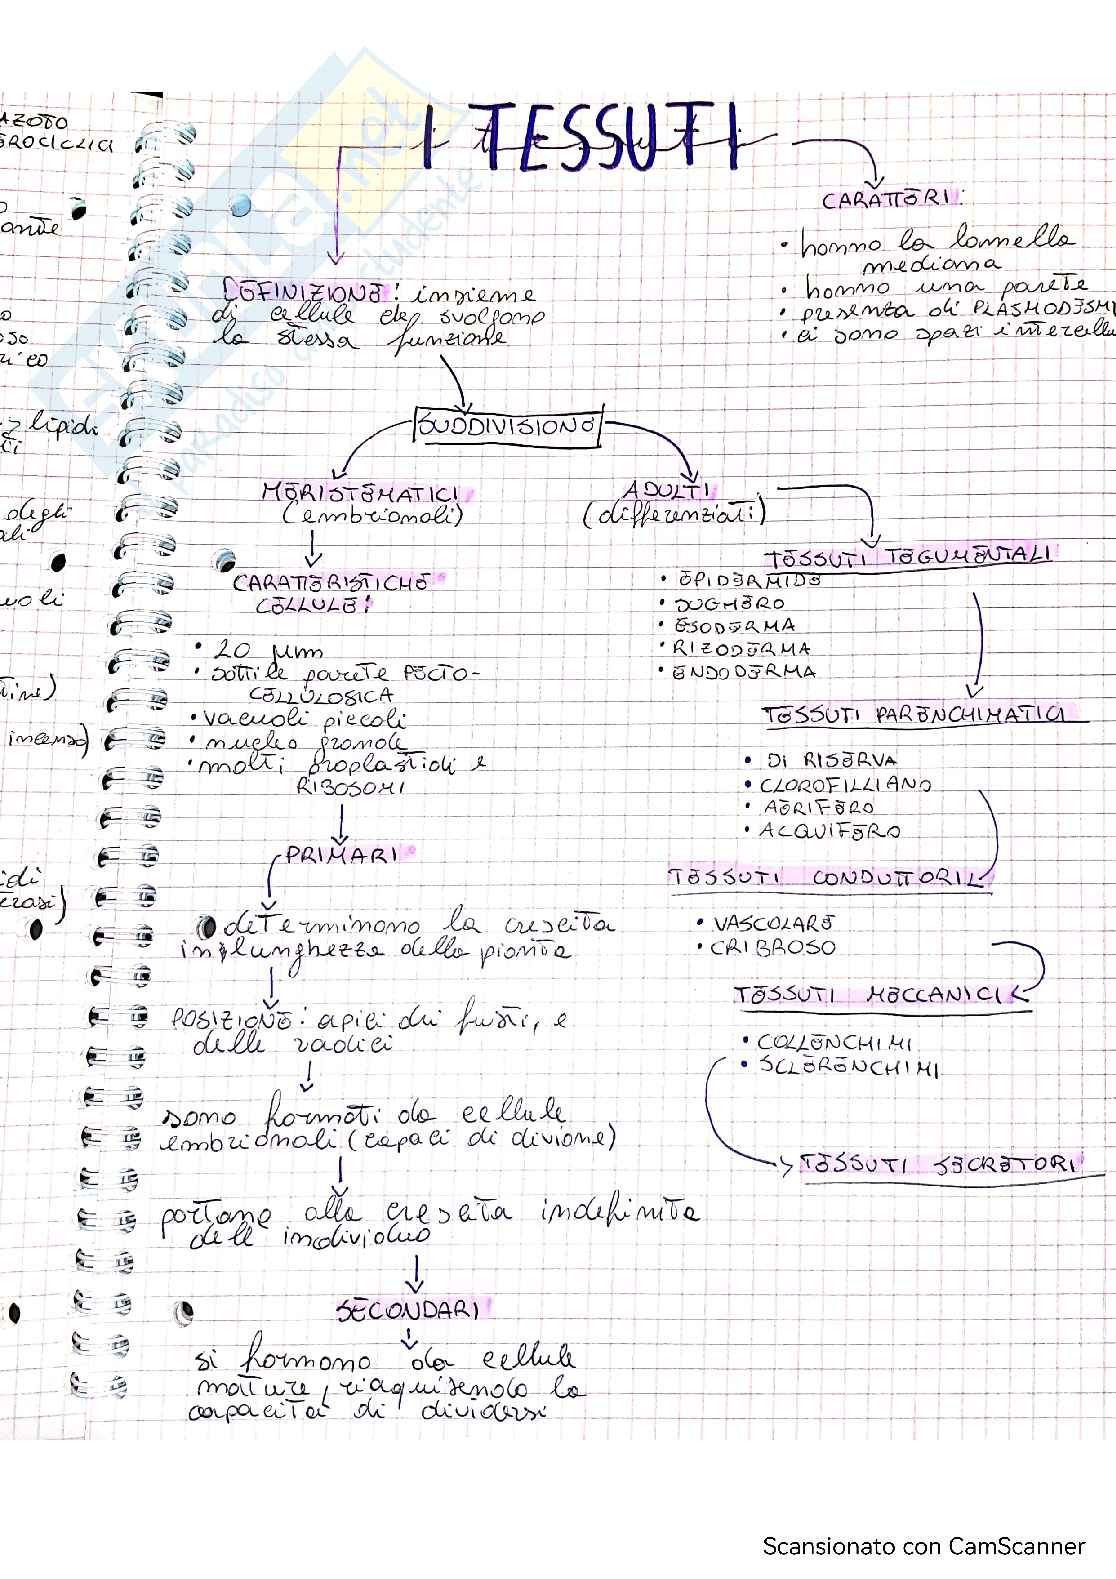 I TESSUTI
CARATTERI:
• hanno la lamella
mediana
• hanno una parete
• presenza di PLASMODESMI
• ci sono spazi intercellu
DEFINIZIONE: insieme
di cellule che svolgono
la stessa funzione
SUDDIVISIONE
MERISTEMATICI
(embrionali)
ADULTI
(differenziati)
CARATTERISTICHE
CELLULE:
• 20 μm
• sottile parete PECTO-
CELLULOSICA
• vacuoli piccoli
• nucleo grande
• molti proplastidi e
RIBOSOMI
PRIMARI
determinano la crescita
in lunghezza della pianta
POSIZIONE: apici dei fusti, e
delle radici
sono formati da cellule
embrionali (capaci di divione)
portano alla crescita indefinita
dell'individuo
SECONDARI
si formano da cellule
mature, riaquisendo la
capacità di dividersi
TESSUTI TEGUMENTALI
• EPIDERMIDE
• SUGHERO
• ESODERMA
• RIZODERMA
• ENDODERMA
TESSUTI PARENCHIMATICI
• DI RISERVA
• CLOROFILLIANO
• AERIFERO
• ACQUIFERO
TESSUTI CONDUTTORI
• VASCOLARE
• CRIBROSO
TESSUTI MECCANICI
• COLLENCHIMI
• SCLERENCHIMI
TESSUTI SECRETORI
AZOTO
EROCICLICI
ante
oso
rico
lipidi
ti
degli
ali
uoli
tine)
incenso)
idi
erasi)
Scansionato con CamScanner